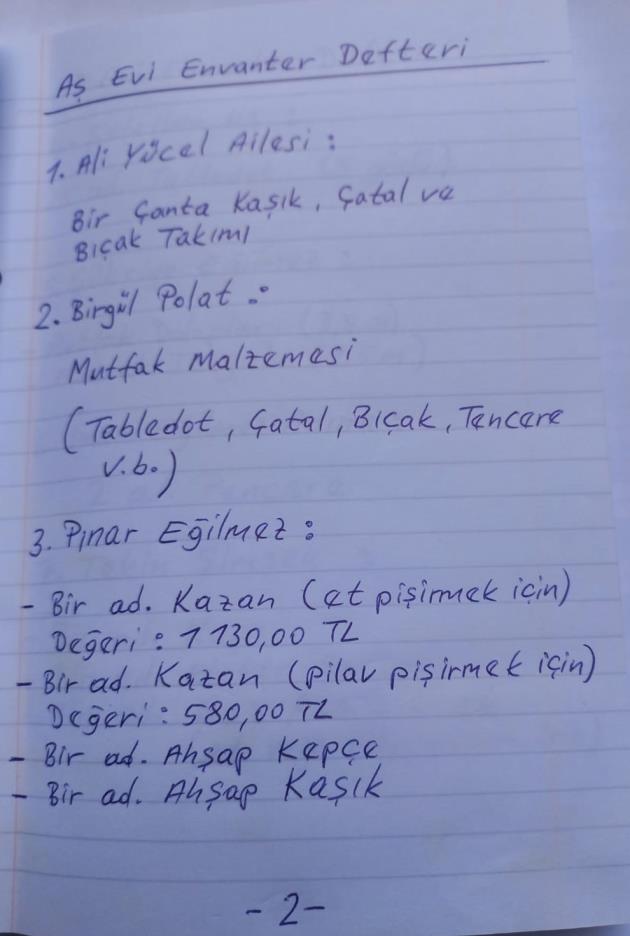 Aş Evi Envanter Defteri
1. Ali Yücel Ailesi :
Bir Çanta Kaşık, Çatal ve
Bıçak Takımı
2. Birgül Polat :
Mutfak Malzemesi
(Tabledot, Çatal, Bıçak, Tencere
v.b.)
3. Pınar Eğilmez :
- Bir ad. Kazan (et pişirmek için)
Değeri : 1130,00 TL
- Bir ad. Kazan (pilav pişirmek için)
Değeri : 580,00 TL
- Bir ad. Ahşap Kepçe
- Bir ad. Ahşap Kaşık
-2-